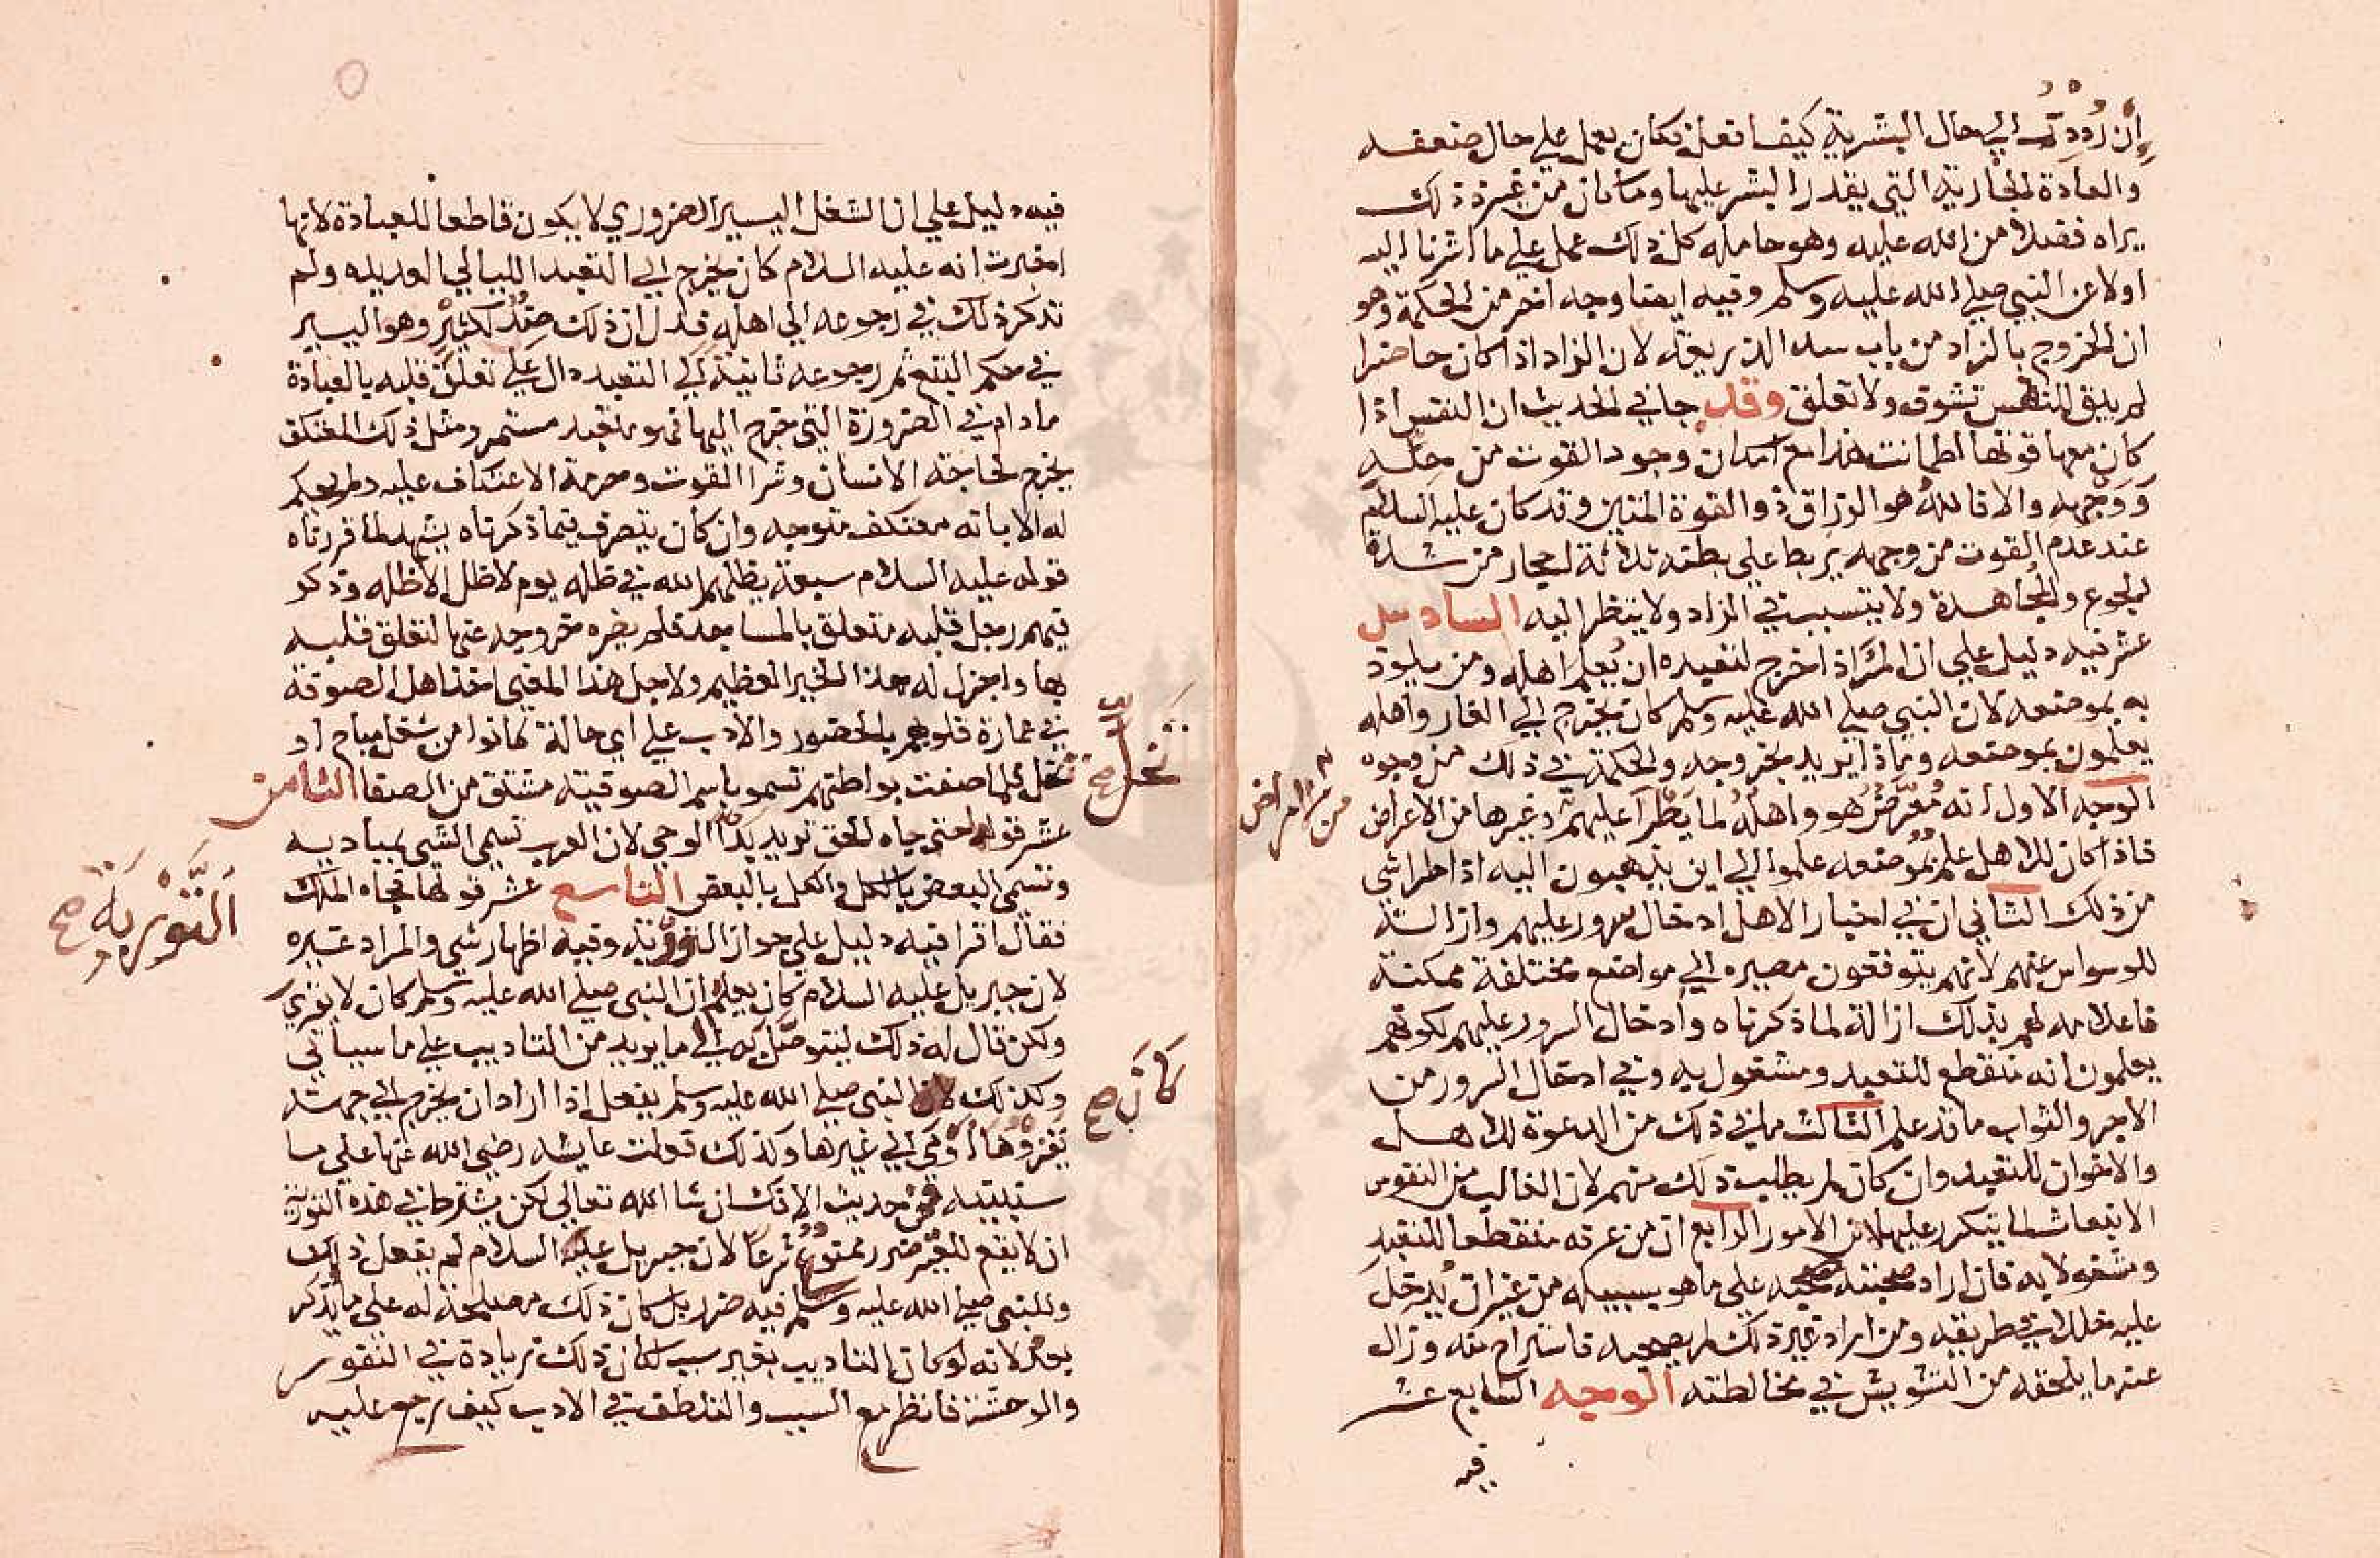 ان رُدِدتُ الي حال البشرية كيف افعل فكان يعمل علي حال ضعفه
والعادة الجارية التي يقدر البشر عليها وما كان من غير ذلك
يراه فضلا من الله عليه وهو حامله كل ذلك عمل علي ما اشرنا اليه
اولا عن النبي صلي الله عليه وسلم وفيه ايضا وجه اخر من الحكمة وهو
ان الخروج بالزاد من باب سد الذريعة لان الزاد اذا كان حاضرا
لم يبق للنفس تشوق ولا تعلق وقد جا في الحديث ان النفس اذا
كان معها قوتها اطمانت هذا مع امكان وجود القوت من حله
ووجهه والا فالله هو الرزاق ذو القوة المتين وقد كان عليه السلام
عند عدم القوت من وجهه يربط علي بطنه ثلاثة احجار من شدة
الجوع والمجاهدة ولا يتسبب في الزاد ولا ينظر اليه السادس
عشر فيه دليل علي ان المرا اذا خرج لتعبده ان يُعلِم اهله ومن يلوذ
به بموضعه لان النبي صلي الله عليه وسلم كان يخرج الي الغار واهله
يعلمون بموضعه وماذا يريد بخروجه والحكمة في ذلك من وجوه
الوجه الاول انه مُعَرَّضٌ هو واهلُه لما يطرأ عليهم وغيرها من الاعراض
من الامراض
فاذا كان للاهل علم بموضعه علموا الي اين يذهبون اليه اذا طرا شي
من ذلك الثاني ان في اخبار الاهل ادخال سرور عليهم وازالة
للوسواس عنهم لانهم يتوقعون مصيره الي مواضع مختلفة ممكنة
فاعلامه لهم بذلك ازالة لما ذكرناه وادخال السرور عليهم لكونهم
يعلمون انه منقطع للتعبد ومشغول به وفي ادخال السرور من
الاجر والثواب ما قد علم الثالث ما في ذلك من الدعوة للاهل
والاخوان للتعبد وان كان لم يطلب ذلك منهم لان الغالب من النفوس
الانبعاث لما يتكرر عليها من الامور الرابع ان من عرفه منقطعا للتعبد
ومشغولا به فان اراد صحبته صحبه علي ما هو بسبيله من غير ان يُدخل
عليه خللا في طريقه ومن اراد غير ذلك لم يصحبه فاستراح منه وزال
عنه ما يلحقه من التشويش في مخالطته الوجه السابع عشر
فيه
فيه دليل علي ان الشغل اليسير الضروري لا يكون قاطعا للعبادة لانها
اخبرت انه عليه السلام كان يخرج الي التعبد الليالي العديدة ولم
تذكر ذلك في رجوعه الي اهله فدل ان ذلك ضِدُّ لكثير وهو اليسير
في حكم التبع ثم رجوعه ثانية الي التعبد دال علي تعلق قلبه بالعبادة
ما دام في الضرورة التي خرج اليها فهو متعبد مستمر ومثل ذلك المعتكف
يخرج لحاجة الانسان وشرا القوت وحرمة الاعتكاف عليه ولم يحكم
له الا بانه معتكف متوجه وان كان يتصرف فيما ذكرناه يشهد لما قررناه
قوله عليه السلام سبعة يظلهم الله في ظله يوم لا ظل الا ظله وذكر
فيهم رجل قلبه متعلق بالمساجد فلم يضره خروجه عنها لتعلق قلبه
بها واجزل له هذا الخير العظيم ولاجل هذا المعني اخذ اهل الصوفة
في عمارة قلوبهم بالحضور والادب علي اي حالة كانوا من شغل مباح او
تخلٍّ فلما صفت بواطنهم تسمو باسم الصوفية مشتق من الصفا الثامن
تَخَلٍّ صح
عشر قوله حتي جاه الحق تريد بدأ الوحي لان العرب تسمي الشي بمباديه
وتسمي البعض بالكل والكل بالبعض التاسع عشر قولها فجاه الملك
فقال اقرا فيه دليل علي جواز التورية وفيه اظهار شي والمراد غيره
اَلتَّوْرِيَةِ صح
لان جبريل عليه السلام كان يعلم ان النبي صلي الله عليه وسلم كان لا يقري
ولكن قال له ذلك ليتوصل به الي ما يريد من التاديب علي ما سياتي
وكذلك كان النبي صلي الله عليه وسلم يفعل اذا اراد ان يخرج الي جهة
كَانَ صح
يغزوها اومي الي غيرها وكذلك قولت عايشه رضي الله عنها علي ما
سنبينه في حديث الافك ان شا الله تعالي لكن يشترط في هذه التورية
ان لا يقع للغير ضرر ممنوعٌ شرعًا لان جبريل عليه السلام لم يفعل ذلك
وللنبي صلي الله عليه وسلم فيه ضرر بل كان ذلك مصلحة له علي ما يُذكر
بعدُ لانه لو كان التاديب بغير سبب لكان ذلك زيادة في النفور
والوحشة فانظر مع السبب والتلطف في الادب كيف رجع عليه